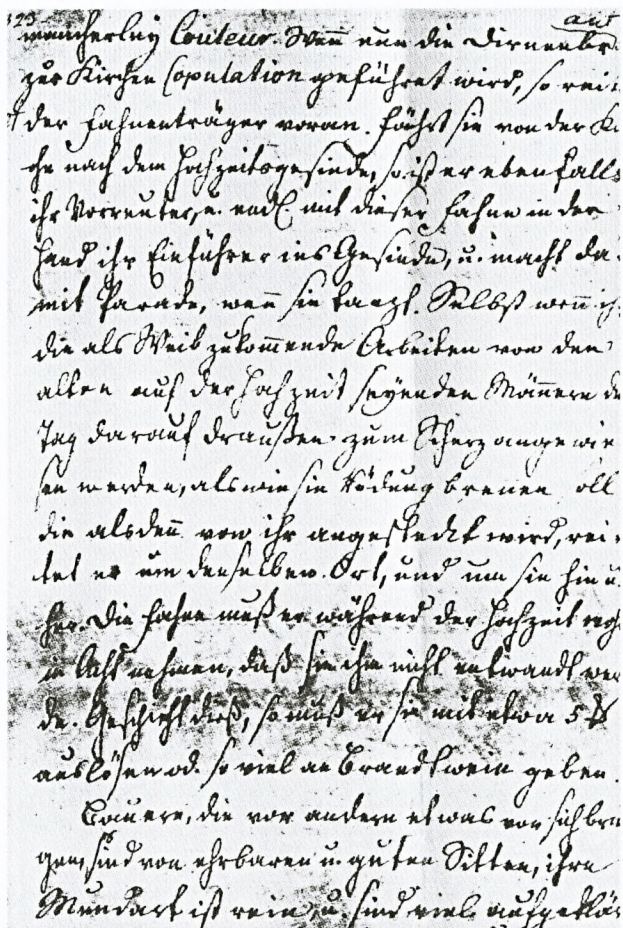 323
auf
mancherley Couleur. Wenn nun die Dirne aber
zur Kirchen Copulation geführet wird, so reit
der Fahnenträger voran. Fährt sie von der Ki
che nach dem Hochzeitsgesinde, so ist er ebenfalls
ihr Vorreuter, u. endl. mit dieser Fahne in der
Hand ihr Einführer ins Gesinde, u. macht da
mit Parade, wenn sie tanzt. Selbst wenn ih
die als Weib zukommende Arbeiten von den
alten auf der Hochzeit seyenden Männern de
Tag darauf draußen zum Scherz angewie
sen werden, als wie sie Rödung brennen soll
die alsdenn von ihr angesteckt wird, rei-
tet er um denselben Ort, und um sie hin u.
her. Die Fahne muß er während der Hochzeit woh
in Acht nehmen, daß sie ihm nicht entwandt wer
de. Geschieht dieß, so muß er sie mit etwa 5
auslösen od. so viel an Brandtwein geben.
Bauern, die vor andern etwas vor sich brin
gen, sind von ehrbaren u. guten Sitten, ihre
Mundart ist rein, u. sind viel aufgeklär